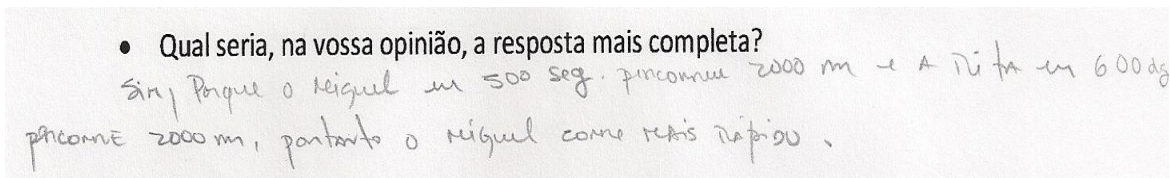 • Qual seria, na vossa opinião, a resposta mais completa?
Sim, Porque o Miguel em 500 seg. pincorreu 2000 m e A Rita em 600
pricorre 2000 m, portanto o Miguel corre mais rápido.